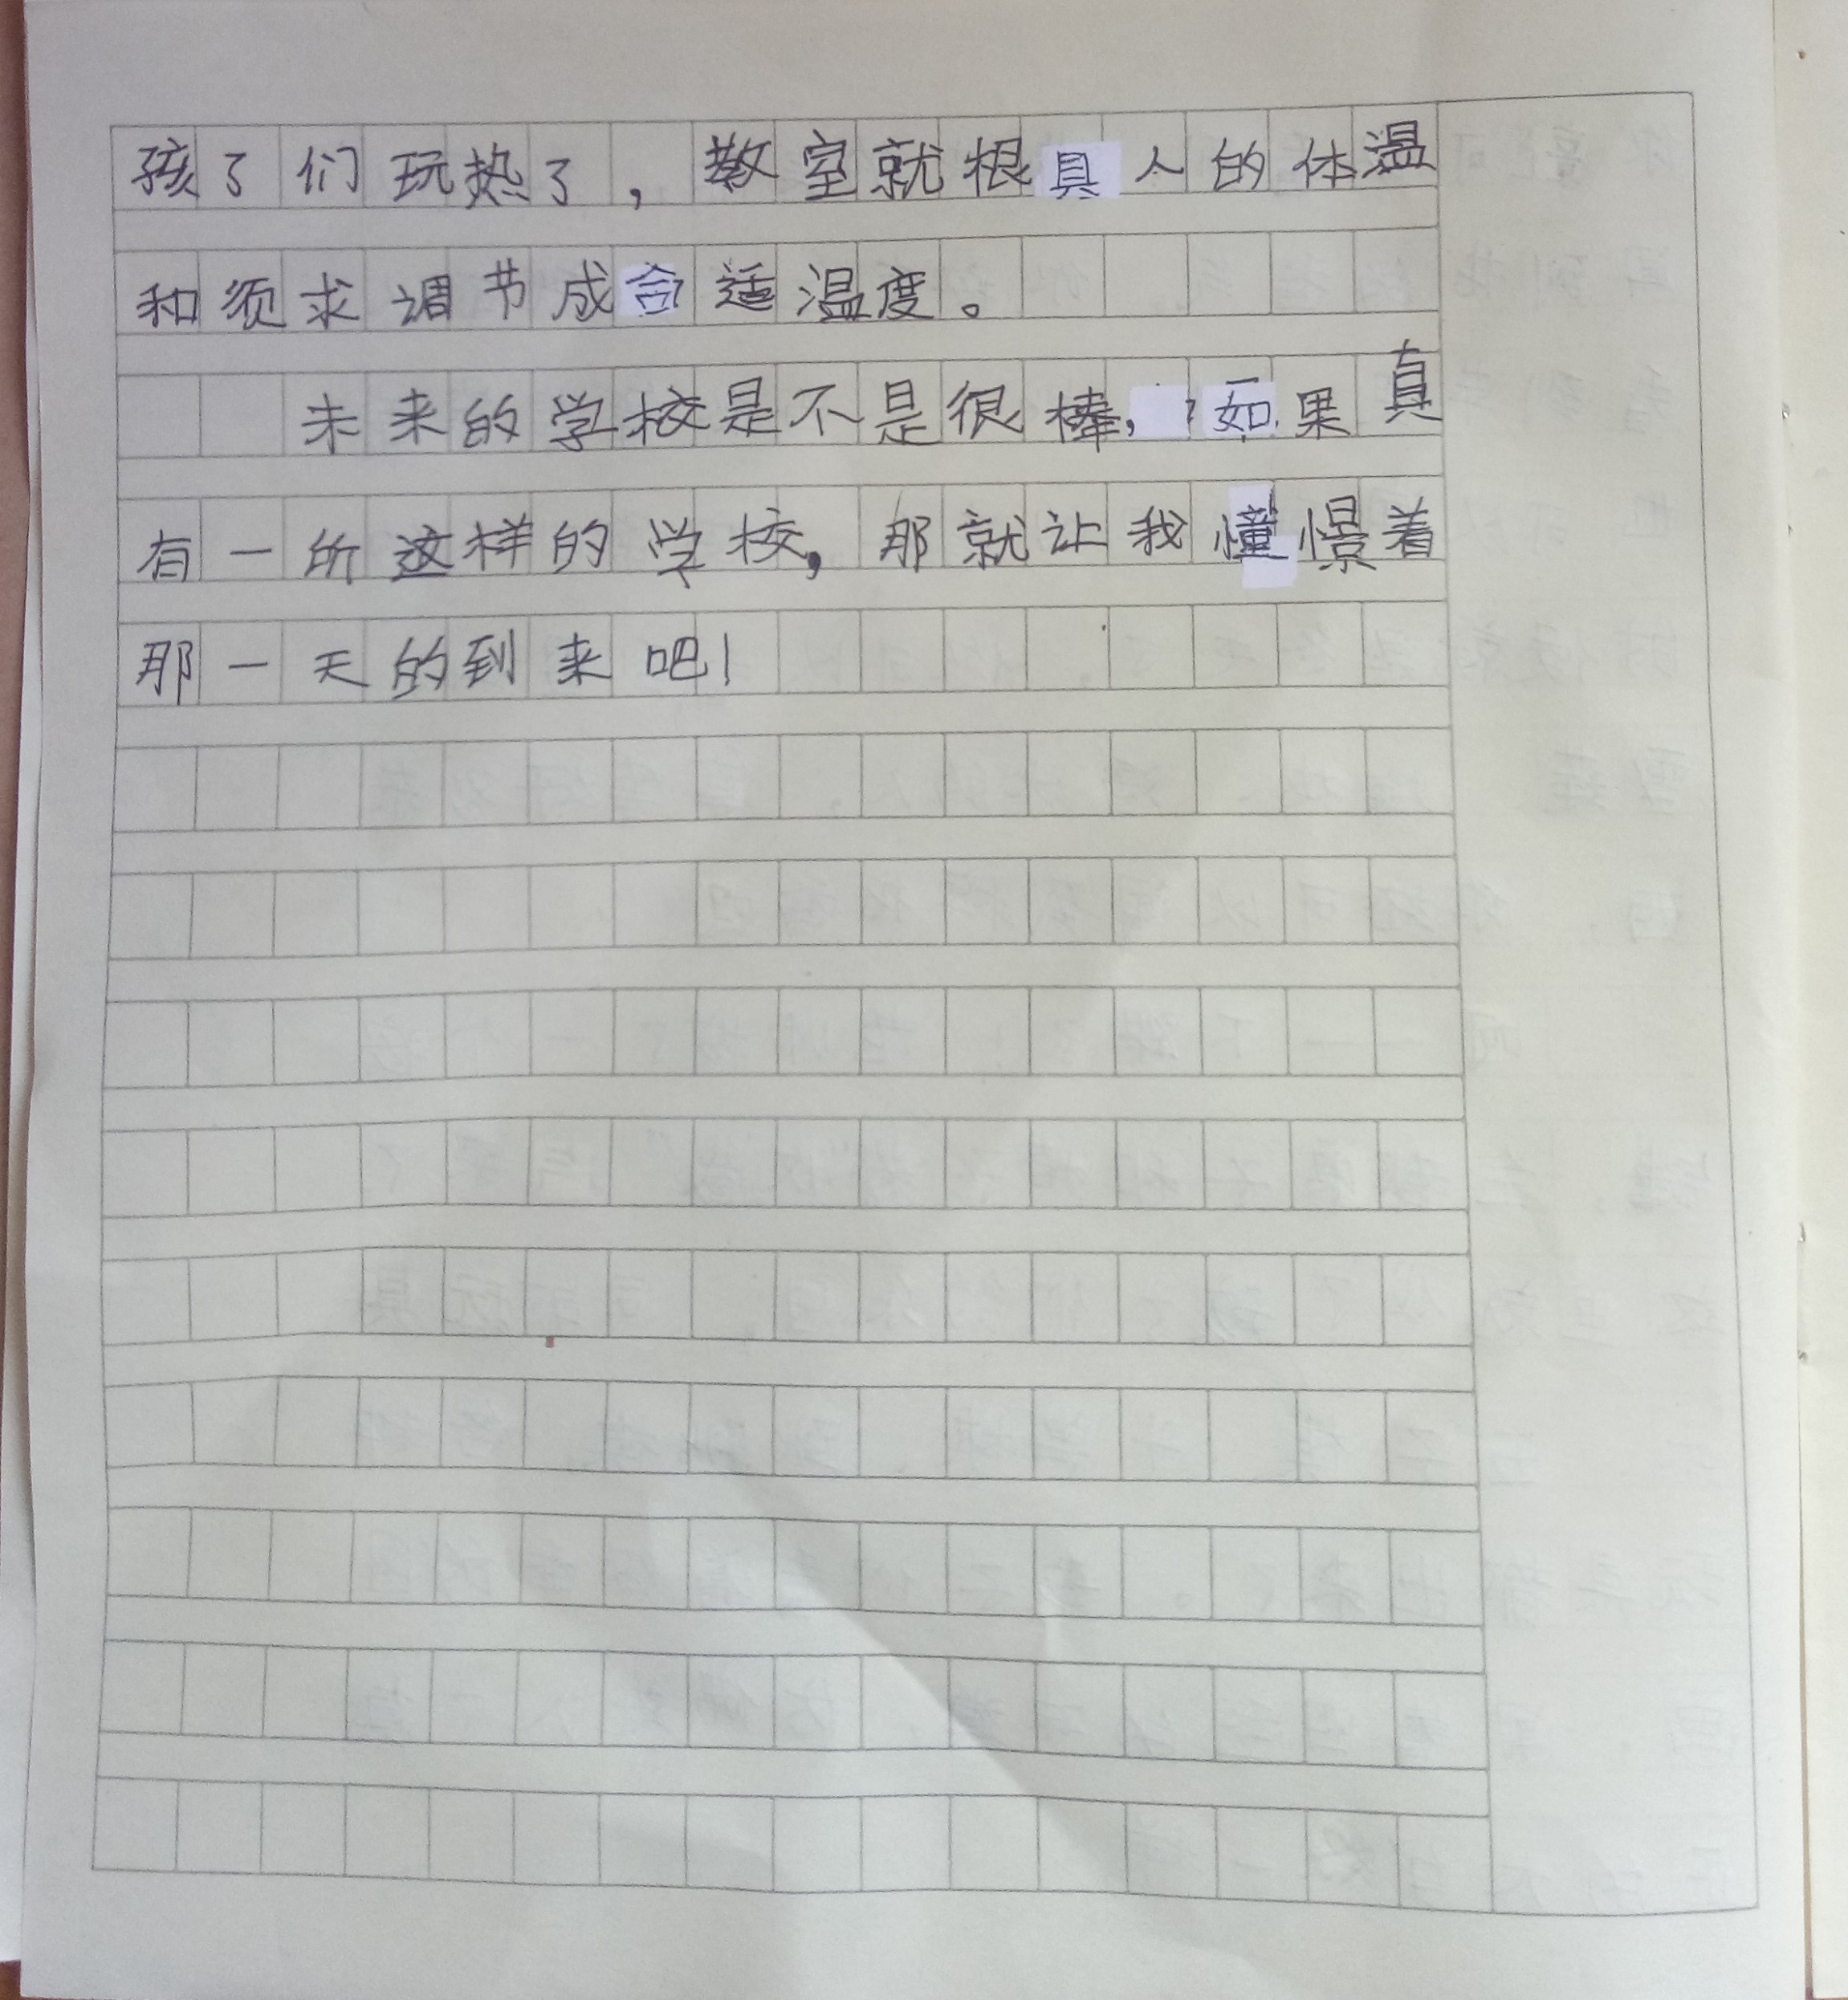 孩了们玩热了，教室就根具人的体温
和须求调节成合适温度。
未来的学校是不是很棒，如果真
有一所这样的学校，那就让我憧憬着
那一天的到来吧！